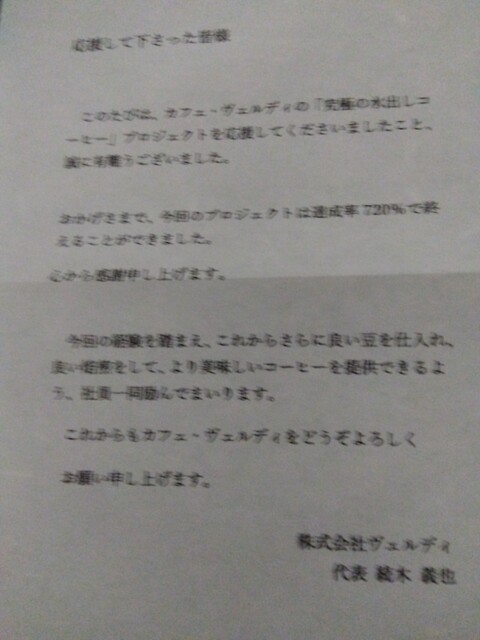 応援して下さった皆様
このたびは、カフェ・ヴェルディの「究極の水出しコ
ーヒー」プロジェクトを応援してくださいましたこと、
誠に有難うございました。
おかげさまで、今回のプロジェクトは達成率720%で終
えることができました。
心から感謝申し上げます。
今回の経験を踏まえ、これからさらに良い豆を仕入れ、
良い焙煎をして、より美味しいコーヒーを提供できるよ
う、社員一同励んでまいります。
これからもカフェ・ヴェルディをどうぞよろしく
お願い申し上げます。
株式会社ヴェルディ
代表 続木 義也